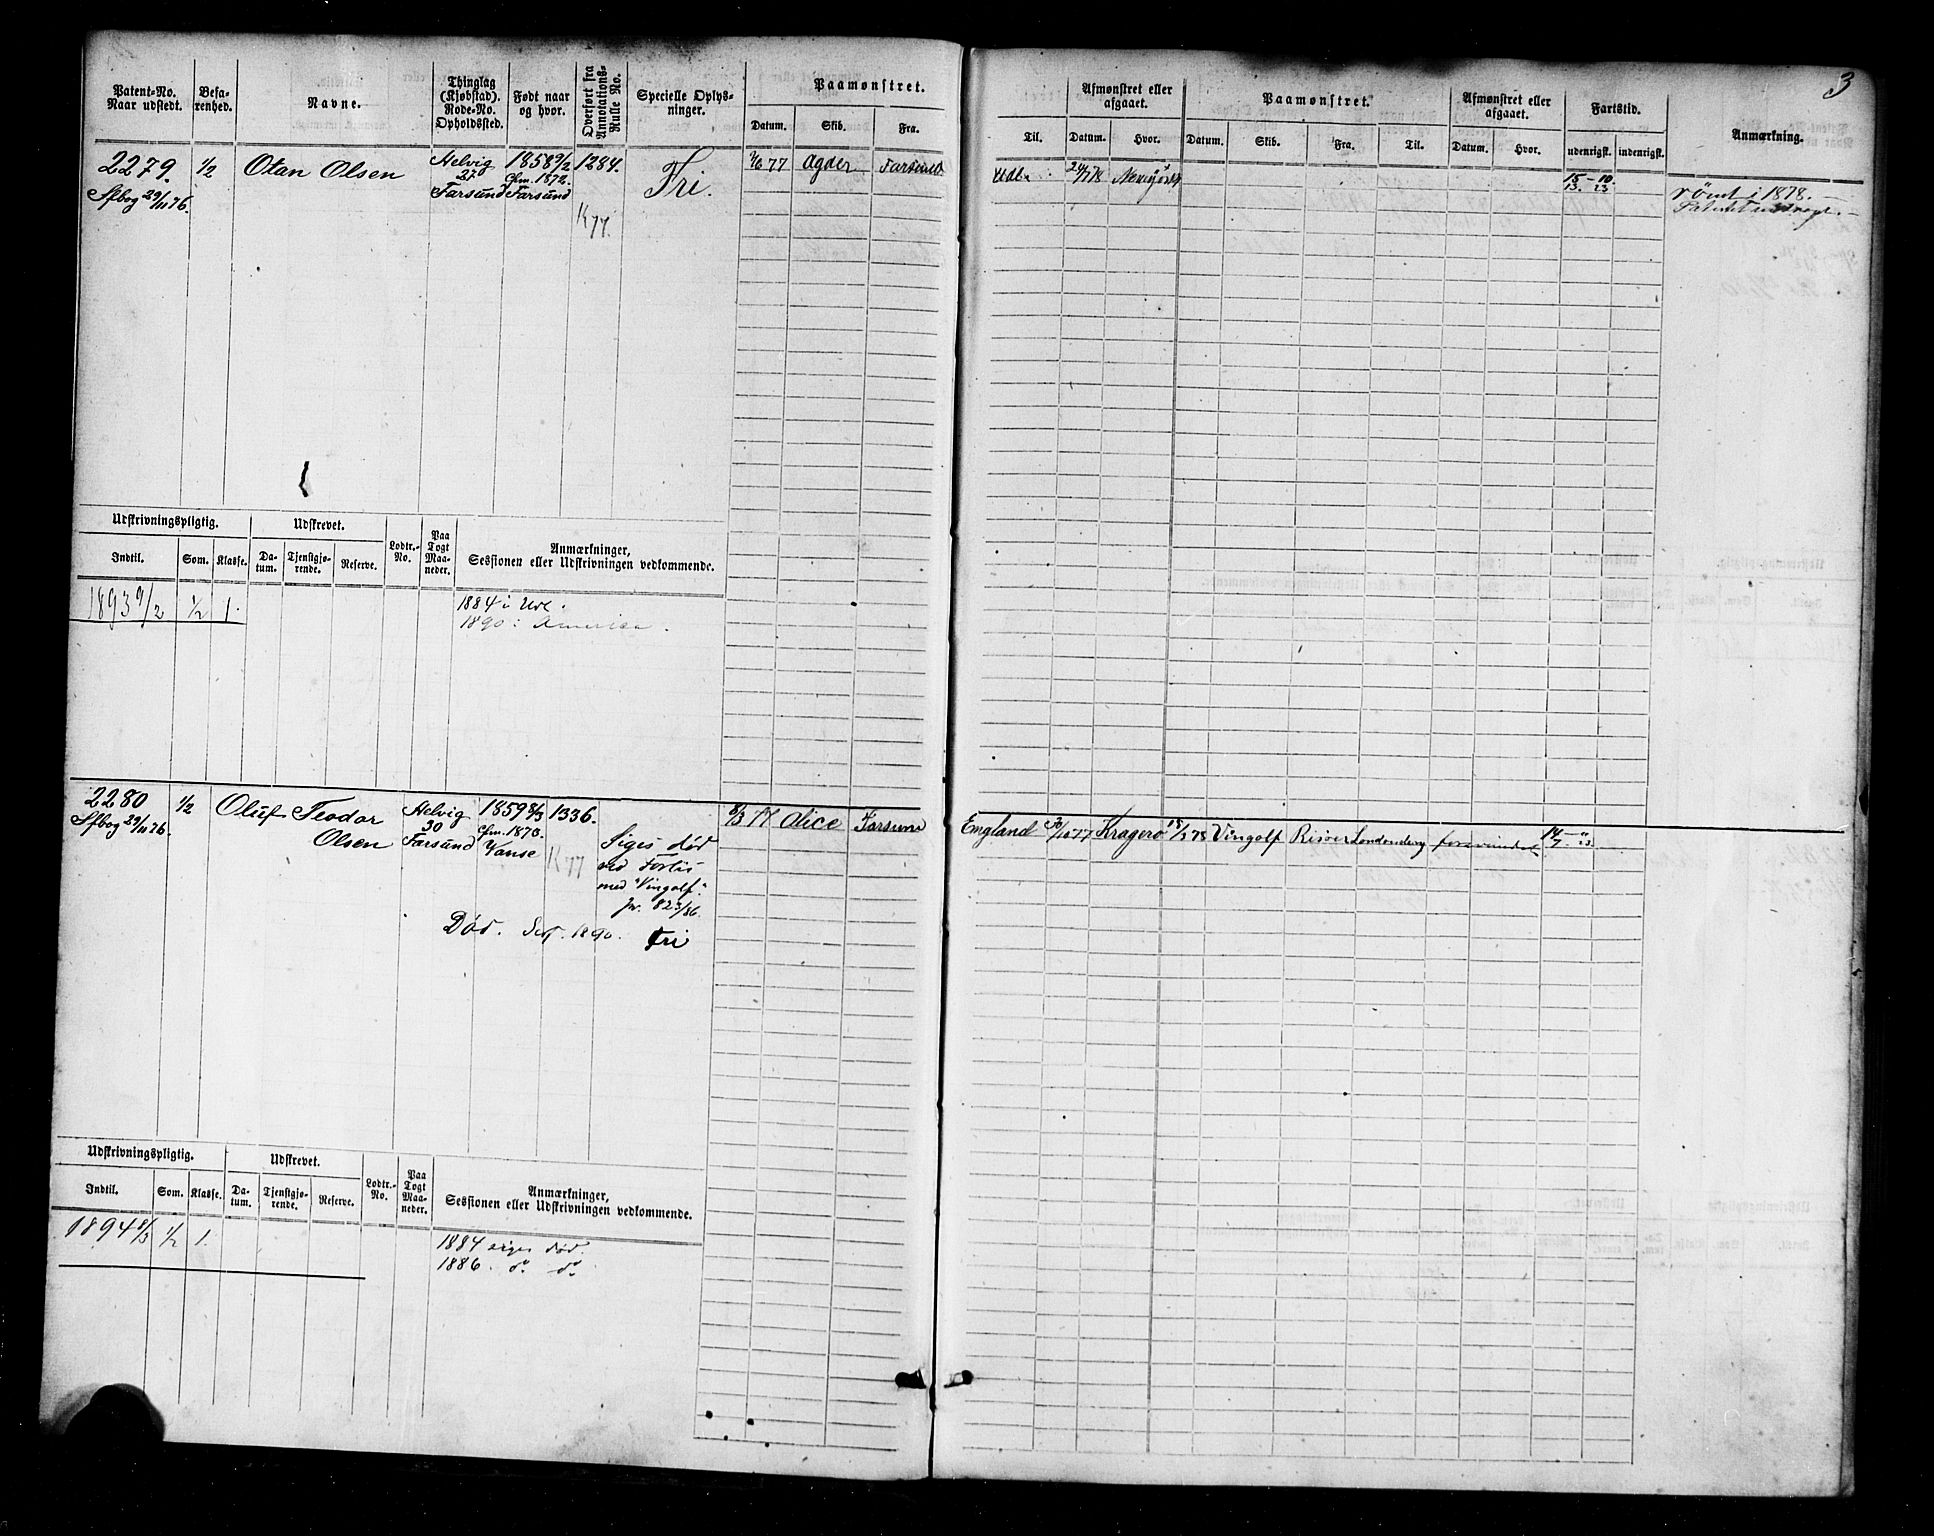 3
Patent-No.
Naar udstedt.
Befa-
renhed.
Navne.
Thinglag
(Kjøbstad).
Rode-No.
Opholdssted.
Født naar
og hvor.
Overført fra
Annotations-
Rulle No.
Specielle Oplys-
ninger.
Paamønstret.
Datum.
Skib.
Fra.
Til.
Afmønstret eller
afgaaet.
Datum.
Hvor.
Paamønstret.
Datum.
Skib.
Fra.
Til.
Afmønstret eller
afgaaet.
Datum.
Hvor.
Fartstid.
udenrigsk.
indenrigsk.
Anmærkning.
2279.
Sfbog 29/11 76.
1/2
Otan Olsen
Helvig
27
Farsund
1858 9/2
Cfm. 1872.
Farsund
1284.
K 77.
Fri.
77
Agder
Farsund
Udl.
24/7 78
15 – 10
13. 23
rømt i 1878.
Udskrivningspligtig.
Udskrevet.
Lodtr.-
No.
Paa
Togt
Maa-
neder.
Anmærkninger,
Sessionen eller Udskrivningen vedkommende.
Indtil.
Som.
Klasse.
Da-
tum.
Tjenstgjø-
rende.
Reserve.
1893 9/2
1/2
1.
1884 i Udl.
1890 i America.
2280
Sfbog 29/11 76.
1/2
Oluf Teodor
Olsen
Helvig
30
Farsund
1859 8/3
Cfm. 1873.
Vanse
1336.
K 77
Siges død
ved Forlis
med "Vingolf."
Jr. 823/86.
Død. Sept. 1890. Fri
8/3 77
Alice
Farsund
England
77
Kragerø
78
Vingolf
Risøer
Londonderry
forsvundet
14 – "
7. 23.
Udskrivningspligtig.
Udskrevet.
Lodtr.-
No.
Paa
Togt
Maa-
neder.
Anmærkninger,
Sessionen eller Udskrivningen vedkommende.
Indtil.
Som.
Klasse.
Da-
tum.
Tjenstgjø-
rende.
Reserve.
1894 8/3
1/2
1.
1884 siges død.
1886. do do